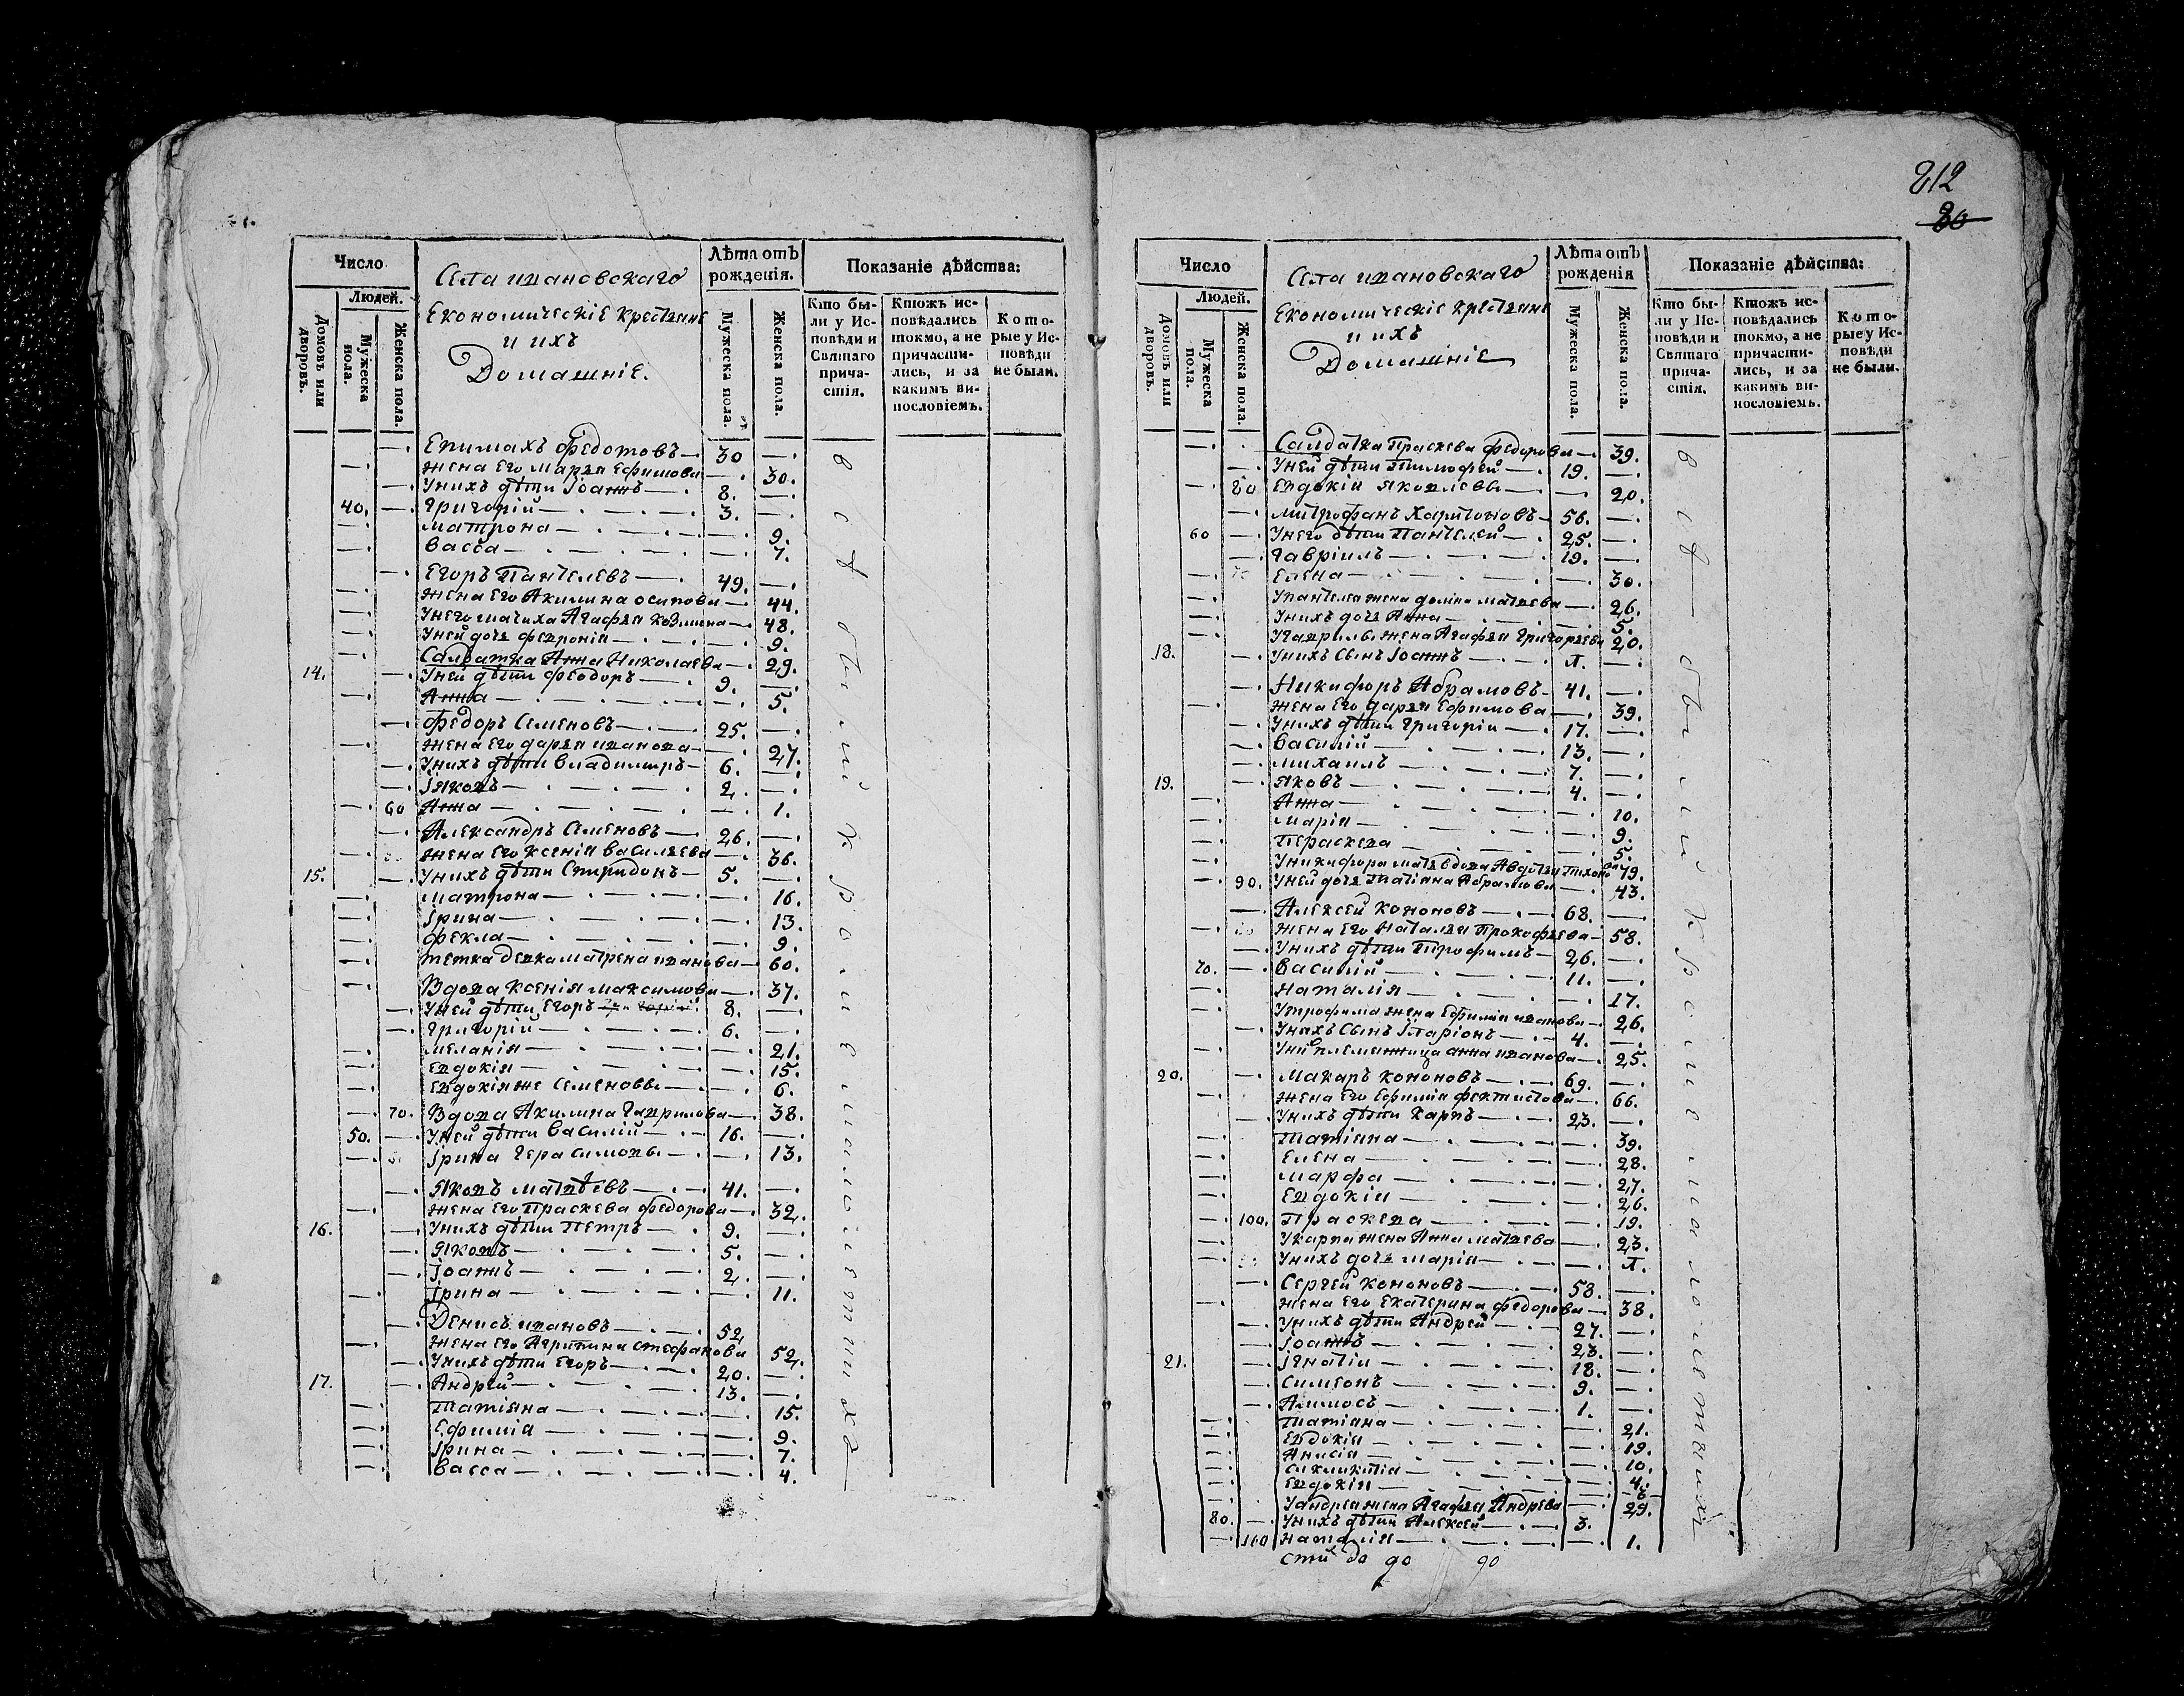 812
80
Число
Людей.
Домовъ или дворовъ.
Мужеска пола.
Женска пола.
Села ивановскаго
Економическіе крестьяне
и ихъ
Домашніе.
Лѣта отъ рожденія.
Мужеска пола.
Женска пола.
Показаніе дѣйства:
Кто были у Исповѣди и Святаго причастія.
Ктожъ исповѣдались токмо, а не причастились, и за какимъ винословіемъ.
Которые у Исповѣди не были.
Епимахъ Федотовъ — 30 —.
жена Его марья Ефимова — 30.
Унихъ дѣти Іоаннъ — 8. —.
40. Григорій — 3. —.
матрона — 9.
васса — 7.
Егоръ Пантелевъ — 49. —.
жена Его Акилина осипова — 44.
Унего матиха Агафья козмина — 48.
Уней дочь феврониа — 9.
Салдатка Анна Николаева — 29.
14. Уней дѣти феодоръ — 9. —.
Анна — 5.
Федоръ Семеновъ — 25. —.
жена Его дарья иванова — 27.
Унихъ дѣти владимиръ — 6. —.
Іяковъ — 2. —.
60 Анна — 1.
Александръ Семеновъ — 26. —.
жена Его ксенія василева — 36.
15. Унихъ дѣти Спиридонъ — 5. —.
матрона — 16.
Ірина — 13.
фекла — 9.
тетка девка матрена иванова — 60.
Вдова ксенія максимова — 37.
Уней дѣти Егоръ 8. —.
Григорій — 6. —.
меланія — 21.
Евдокія — 15.
Евдокія же Семеновы — 6.
70. Вдова Акилина Гаврилова — 38.
50. Уней дѣти василій — 16. —.
Ірина Герасимовы — 13.
Яковъ матвѣевъ — 41. —.
жена Его Праскева федорова — 32.
16. Унихъ дѣти Петръ — 9. —.
Яковъ — 5. —.
Іоаннъ — 2. —.
Ірина — 11.
Денисъ ивановъ — 52
жена Его Агрипина стефанова 52.
Унихъ дѣти Егоръ — 20. —.
17. Андрей — 13. —.
татіяна — 15.
Ефимія — 9.
Ірина — 7.
васса — 4.
всѣ были у исповеди и святаго
Число
Людей.
Домовъ или дворовъ.
Мужеска пола.
Женска пола.
Села ивановскаго
Економическіе крестьяне
и ихъ
Домашніе
Лѣта отъ рожденія
Мужеска пола.
Женска пола.
Показаніе дѣйства:
Кто были у Исповѣди и Святаго причастія.
Ктожъ исповѣдались токмо, а не причастились, и за какимъ винословіемъ.
Которые у Исповѣди не были.
Салдатка Праскева Федорова — 39.
Уней дѣти Тимофей — 19. —.
80 Евдокіи Яковлевы — 20.
митрофанъ Харитоновъ — 56. —.
60 Унего дѣти Пантелей — 25. —.
Гавріилъ — 19. —.
Елена — 30.
Упантелея жена домна матвева — 26.
Унихъ дочь Анна — 5.
Угаврилы жена Агафья Григорьева 20.
18. Унихъ Сынъ Іоаннъ — п. —.
Никифоръ Абрамовъ — 41. —.
жена Его дарья Ефимова — 39.
Унихъ дѣти Григоріи — 17. —.
василій — 13. —.
михаилъ — 7. —.
19. Яковъ — 4. —.
Анна — 10.
марія — 9.
Пераскева — 5.
Уникифора мать вдова Авдотья Тихонова 79.
90. Уней дочь Татіяна Абрамова — 43.
Алексей кононовъ — 68. —.
жена Его Наталья Прокофьева — 58.
Унихъ дѣти Трофимъ — 26. —.
70. василій — 11. —.
Наталія — 17.
Утрофима жена Ефимия иванова — 26.
Унихъ Сынъ Іларіонъ — 4. —.
Уних племянница анна иванова — 25.
20. макаръ кононовъ — 69. —.
жена Его Ефимия феоктистова — 66.
Унихъ дѣти Карпъ — 23. —.
Татіяна — 39.
Елена — 28.
марфа — 27.
Евдокіи — 26.
100. Праскева — 19.
Укарпа жена Анна матвева — 23.
Унихъ дочь марія — п.
Сергей кононовъ — 58. —.
жена Его Екатерина федорова — 38.
Унихъ дѣти Андрей — 27. —.
Іоаннъ — 23. —.
21. Ігнатіи — 18. —.
Симеонъ — 9. —.
Амосъ — 1. —.
Татіана — 21.
Евдокіи — 19.
Анисія — 10.
синклитіа — 4.
Евдокіи —
Уандрея жена Агафья Андрева — 29.
80. Унихъ дѣти Алексей — 3. —.
110 Наталія — 1.
всѣ были